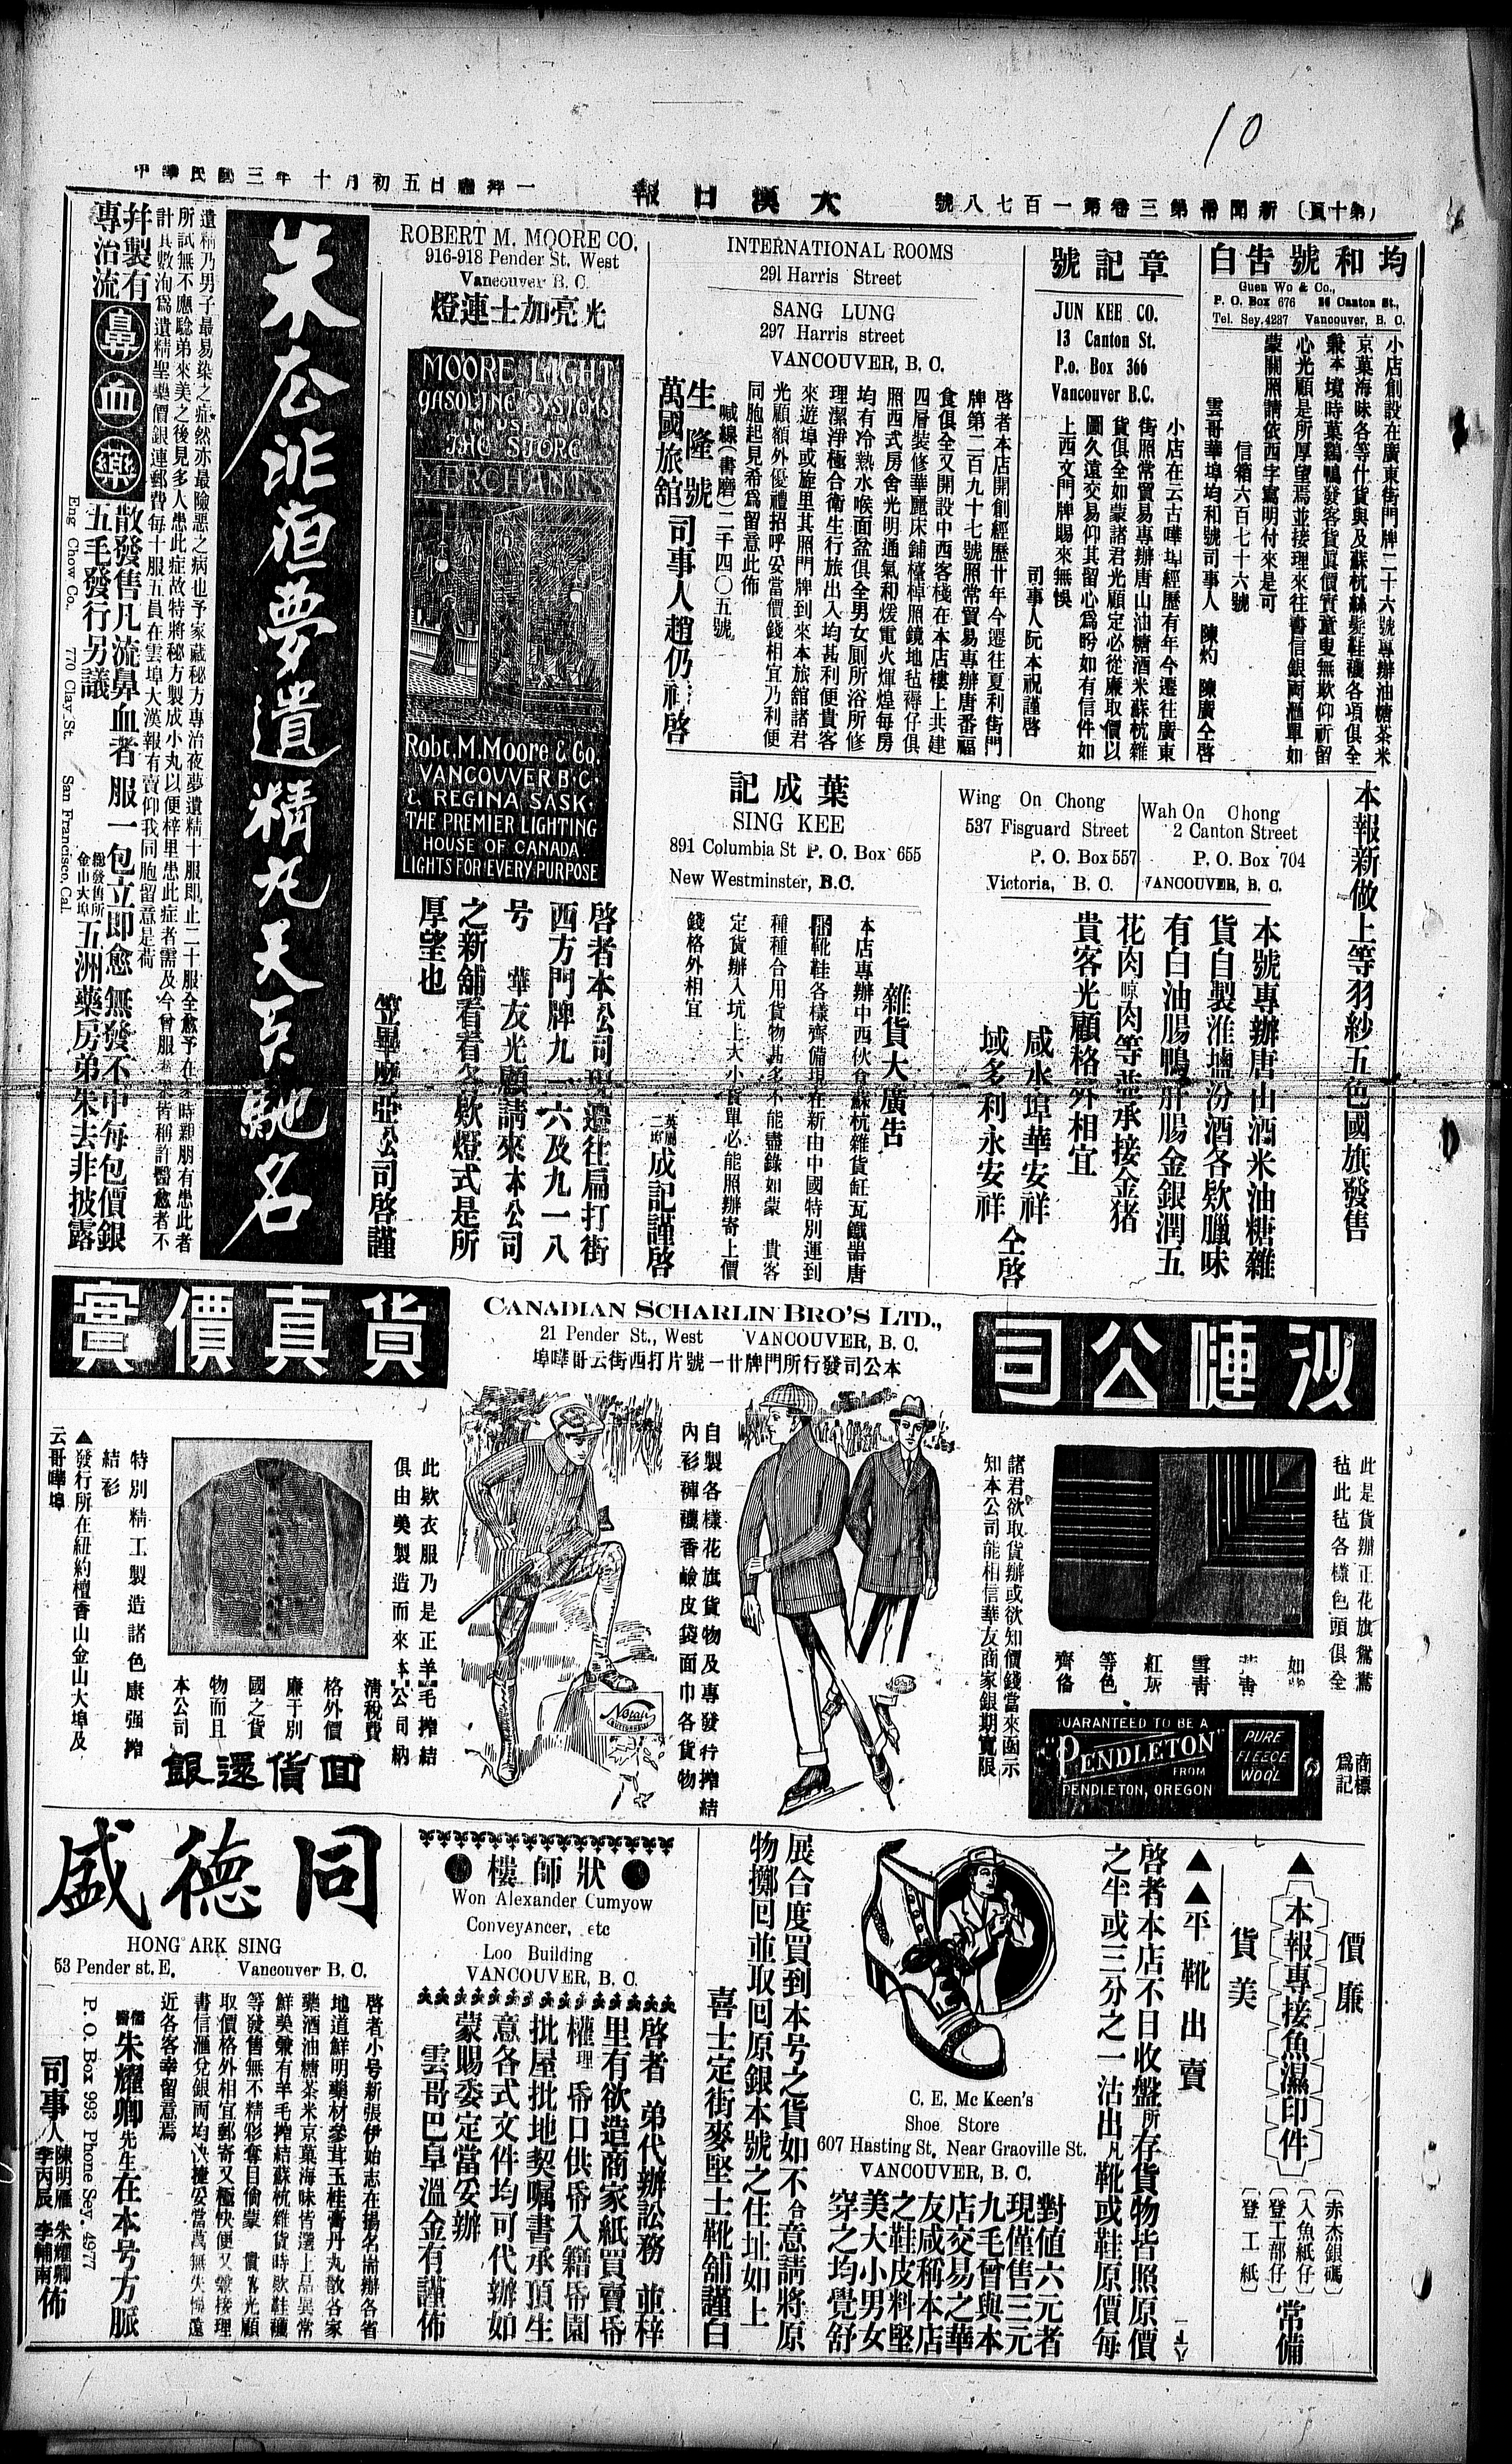 10
(第十頁) 新聞冊第三卷第一百七八號
大漢日報
中華民國三年十月初五日禮拜一
均和號告白
Guen Wo & Co.,
P. O. Box 676 26 Canton St.,
Tel. Sey. 4237 Vancouver, B. C.
小店創設在廣東街門牌二十六號專辦油糖茶米
京菓海味各等什貨與及蘇杭絲髮鞋襪各項俱全
兼本境時菓鷄鴨發客貨眞價實童叟無欺仰祈留
心光顧是所厚望焉並接理來往書信銀両滙單如
蒙關照請依西字寫明付來是可
信箱六百七十六號
雲哥華埠均和號司事人 陳灼 陳廣仝啓
章記號
JUN KEE CO.
13 Canton St.
P.o. Box 366
Vancouver B.C.
小店在云古嘩埠經歷有年今遷往廣東
街照常貿易專辦唐山油糖酒米蘇杭雜
貨俱全如蒙諸君光顧定必從廉取價以
圖久遠交易仰其留心爲盻如有信件如
上西文門牌賜來無悞
司事人阮本祝謹啓
INTERNATIONAL ROOMS
291 Harris Street
SANG LUNG
297 Harris street
VANCOUVER, B. C.
啓者本店開創經歷廿年今遷往夏利街門
牌第二百九十七號照常貿易專辦唐番福
食俱全又開設中西客棧在本店樓上共建
四層裝修華麗床鋪檯棹照鏡地毡褥仔俱
照西式房舍光明通氣和煖電火煇煌每房
均有冷熱水喉面盆俱全男女厠所浴所修
理潔淨極合衛生行旅出入均甚利便貴客
來遊埠或旋里其照門牌到來本旅舘諸君
光顧額外優禮招呼妥當價錢相宜乃利便
同胞起見希爲留意此佈
喊線(書磨)二千四〇五號
生隆號
萬國旅舘
司事人趙仍 啓
ROBERT M. MOORE CO.
916-918 Pender St. West
Vancouver B. C.
光亮加士連燈
MOORE LIGHT
GASOLINE SYSTEMS
IN USE IN
THE STORE
MERCHANTS
Robt. M. Moore & Co.
VANCOUVER B.C.
& REGINA SASK.
THE PREMIER LIGHTING
HOUSE OF CANADA.
LIGHTS FOR EVERY PURPOSE
啓者本公司現遷往扁打街
西方門牌九一六及九一八
号 華友光顧請來本公司
之新舖看看各欵燈式是所
厚望也
笠畢摩亞公司啓謹
朱広非洹夢遺精丸天下馳名
遺精乃男子最易染之症然亦最險惡之病也予家藏秘方專治夜夢遺精十服即止二十服全愈予在 時親朋有患此者
所試無不應驗弟來美之後見多人患此症故特將秘方製成小丸以便梓里患此症者需及今曾服 皆稱許醫愈者不
計其數洵爲遺精聖藥價銀連郵費每十服五員在雲埠大漢報有賣仰我同胞留意是荷
幷製有
專治流
鼻血藥
散發售凡流鼻血者服一包立即愈無發不中每包價銀
五毛發行另議
總發售所
金山大埠
五洲藥房弟朱去非披露
Eng Chow Co. 770 Clay St. San Francisco, Cal.
本報新做上等羽紗五色國旗發售
Wah On Chong
2 Canton Street
P. O. Box 704
VANCOUVER, B. C.
Wing On Chong
537 Fisguard Street
P. O. Box 557
Victoria, B. C.
本號專辦唐山酒米油糖雜
貨自製淮塩汾酒各欵臘味
有白油腸鴨肝腸金銀潤五
花肉晾肉等並承接金猪
貴客光顧格外相宜
咸水埠華安祥
域多利永安祥
仝啓
葉成記
SING KEE
891 Columbia St P. O. Box 655
New Westminster, B.C.
雜貨大廣告
本店專辦中西伙食蘇杭雜貨缸瓦鐵器唐
靴鞋各樣齊備現在新由中國特別運到
種種合用貨物甚多不能盡錄如蒙 貴客
定貨辦入坑上大小貨單必能照辦寄上價
錢格外相宜
英屬
二埠
成記謹啓
沙嗹公司
CANADIAN SCHARLIN BRO'S LTD.,
21 Pender St., West VANCOUVER, B. C.
本公司發行所門牌廿一號片打西街云哥嘩埠
貨真價實
此是貨辦正花旗鴛鴦
毡此毡各樣色頭俱全
如
雪青
紅灰
等色
齊俻
商標
爲記
GUARANTEED TO BE A
"PENDLETON"
FROM
PENDLETON, OREGON
PURE
FLEECE
WOOL
諸君欲取貨辦或欲知價錢當來函示
知本公司能相信華友商家銀期寬限
自製各樣花旗貨物及專發行搾結
內衫褲襪香鹼皮袋面巾各貨物
此欵衣服乃是正羊毛搾結
俱由美製造而來本公司納
淸稅費
格外價
廉于別
國之貨
物而且
本公司
回貨還銀
特別精工製造諸色康强搾
結衫
▲發行所在紐約檀香山金山大埠及
云哥嘩埠
價廉
▲本報專接魚濕印件
貨美
(赤杰銀碼)
(入魚紙仔)
(登工部仔)
(登工紙)
常備
▲▲平靴出賣
啓者本店不日收盤所存貨物皆照原價
之半或三分之一沽出凡靴或鞋原價每
對值六元者
現僅售三元
九毛曾與本
店交易之華
友咸稱本店
之鞋皮料堅
美大小男女
穿之均覺舒
展合度買到本号之貨如不合意請將原
物擲回並取回原銀本號之住址如上
喜士定街麥堅士靴舖謹白
C. E. Mc Keen's
Shoe Store
607 Hasting St. Near Graoville St.
VANCOUVER, B. C.
狀師樓
Won Alexander Cumyow
Conveyancer, etc
Loo Building
VANCOUVER, B. C.
啓者 弟代辦訟務 並梓
里有欲造商家紙買賣帋
權理 帋口供帋入籍帋園
批屋批地契嘱書承頂生
意各式文件均可代辦如
蒙賜委定當妥辦
雲哥巴阜溫金有謹佈
同德盛
HONG ARK SING
53 Pender st. E. Vancouver B. C.
啓者小号新張伊始志在揚名耑辦各省
地道鮮明藥材參茸玉桂膏丹丸散各家
藥酒油糖茶米京菓海味皆選上品異常
鮮美兼有羊毛搾結蘇杭雜貨時欵鞋襪
等發售無不精彩奪目倘蒙 貴客光顧
取價格外相宜郵寄又極快便又兼接理
書信滙兌銀両均快捷妥當萬無失悞遠
近各客幸留意焉
儒醫朱耀卿先生在本号方脈
P. O. Box 993 Phone Sey. 4977
司事人
陳明雁 朱耀卿
李丙辰 李輔南
佈